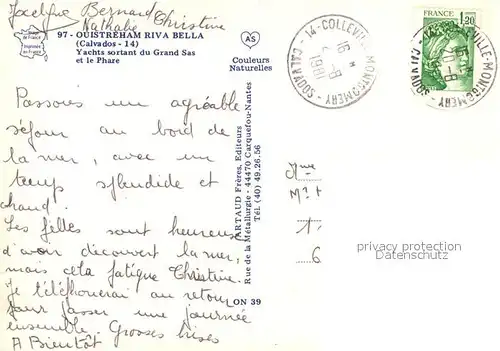 Jocelyne Bernard
Nathalie Christine
Image de France
Imprimée en France
97 - OUISTREHAM RIVA BELLA
(Calvados - 14)
Yachts sortant du Grand Sas
et le Phare
AS
Couleurs
Naturelles
14 - COLLEVILLE-MONTGOMERY - CALVADOS
16 H
-8
1981
FRANCE
1,20
Passons un agréable
séjour au bord de
la mer, avec un
temps splendide et
chaud.
Les filles sont heureuses
d'avoir découvert la mer,
mais cela fatigue Christine.
Je téléphonerai au retour
pour passer une journée
ensemble. Grosses bises
A Bientôt
ARTAUD Frères, Editeurs
Rue de la Métallurgie - 44470 Carquefou-Nantes
Tél. (40) 49.26.56
LON 39
Mme
Mr +
1.
6
privacy protection
Datenschutz